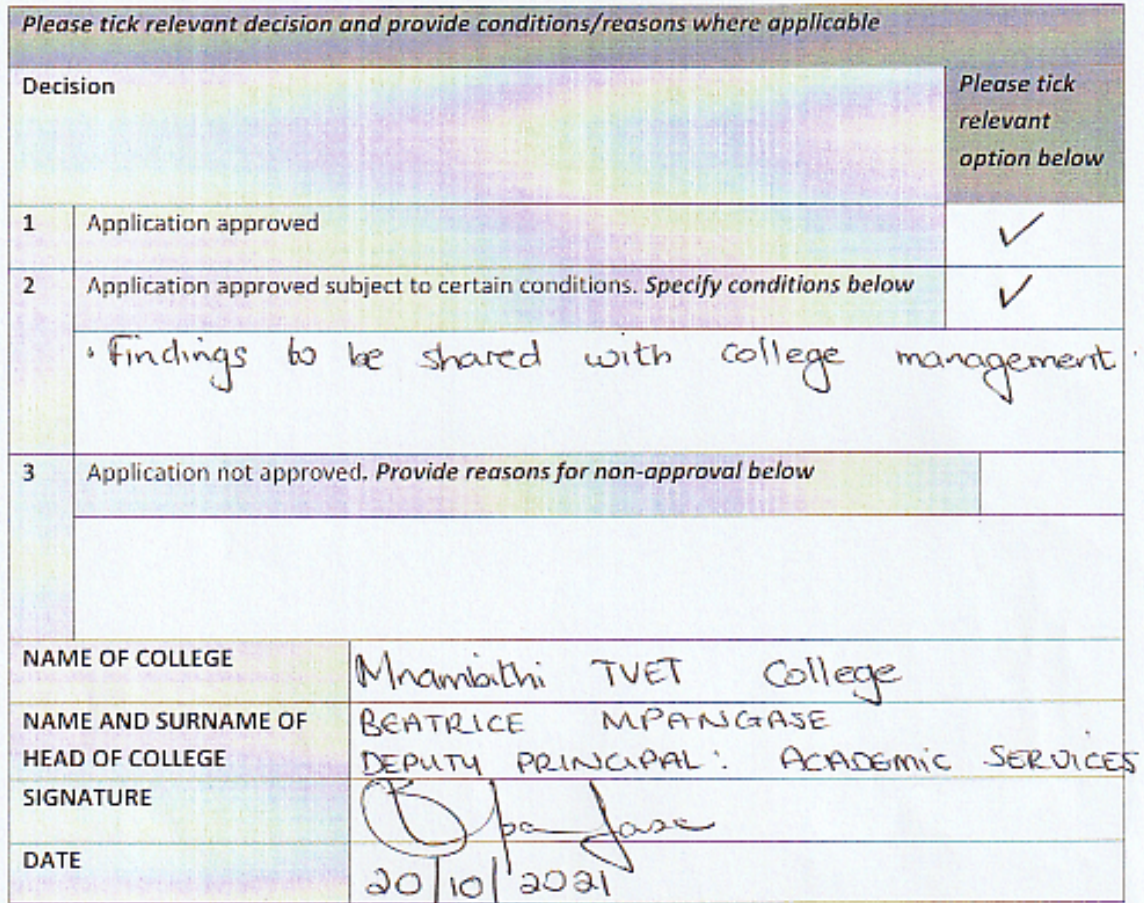 Please tick relevant decision and provide conditions/reasons where applicable
Decision
Please tick
relevant
option below
1 Application approved ✓
2 Application approved subject to certain conditions. Specify conditions below ✓
• Findings to be shared with college management.
3 Application not approved. Provide reasons for non-approval below
NAME OF COLLEGE Mnambithi TVET College
NAME AND SURNAME OF BEATRICE MPANGASE
HEAD OF COLLEGE DEPUTY PRINCIPAL: ACADEMIC SERVICES
SIGNATURE
DATE 20/10/2021